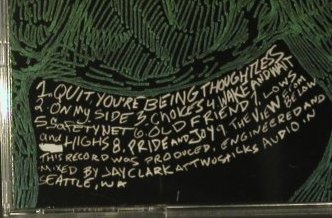 1. QUIT, YOU'RE BEING THOUGHTLESS
2. ON MY SIDE 3. CHOKES 4. WAKE AND WAIT
5. SAFETY NET 6. OLD FRIEND 7. LOWS
and HIGHS 8. PRIDE AND JOY 9. THE VIEW FROM BELOW
THIS RECORD WAS PRODUCED, ENGINEERED AND
MIXED BY JAY CLARK AT TWO STICKS AUDIO IN
SEATTLE, WA